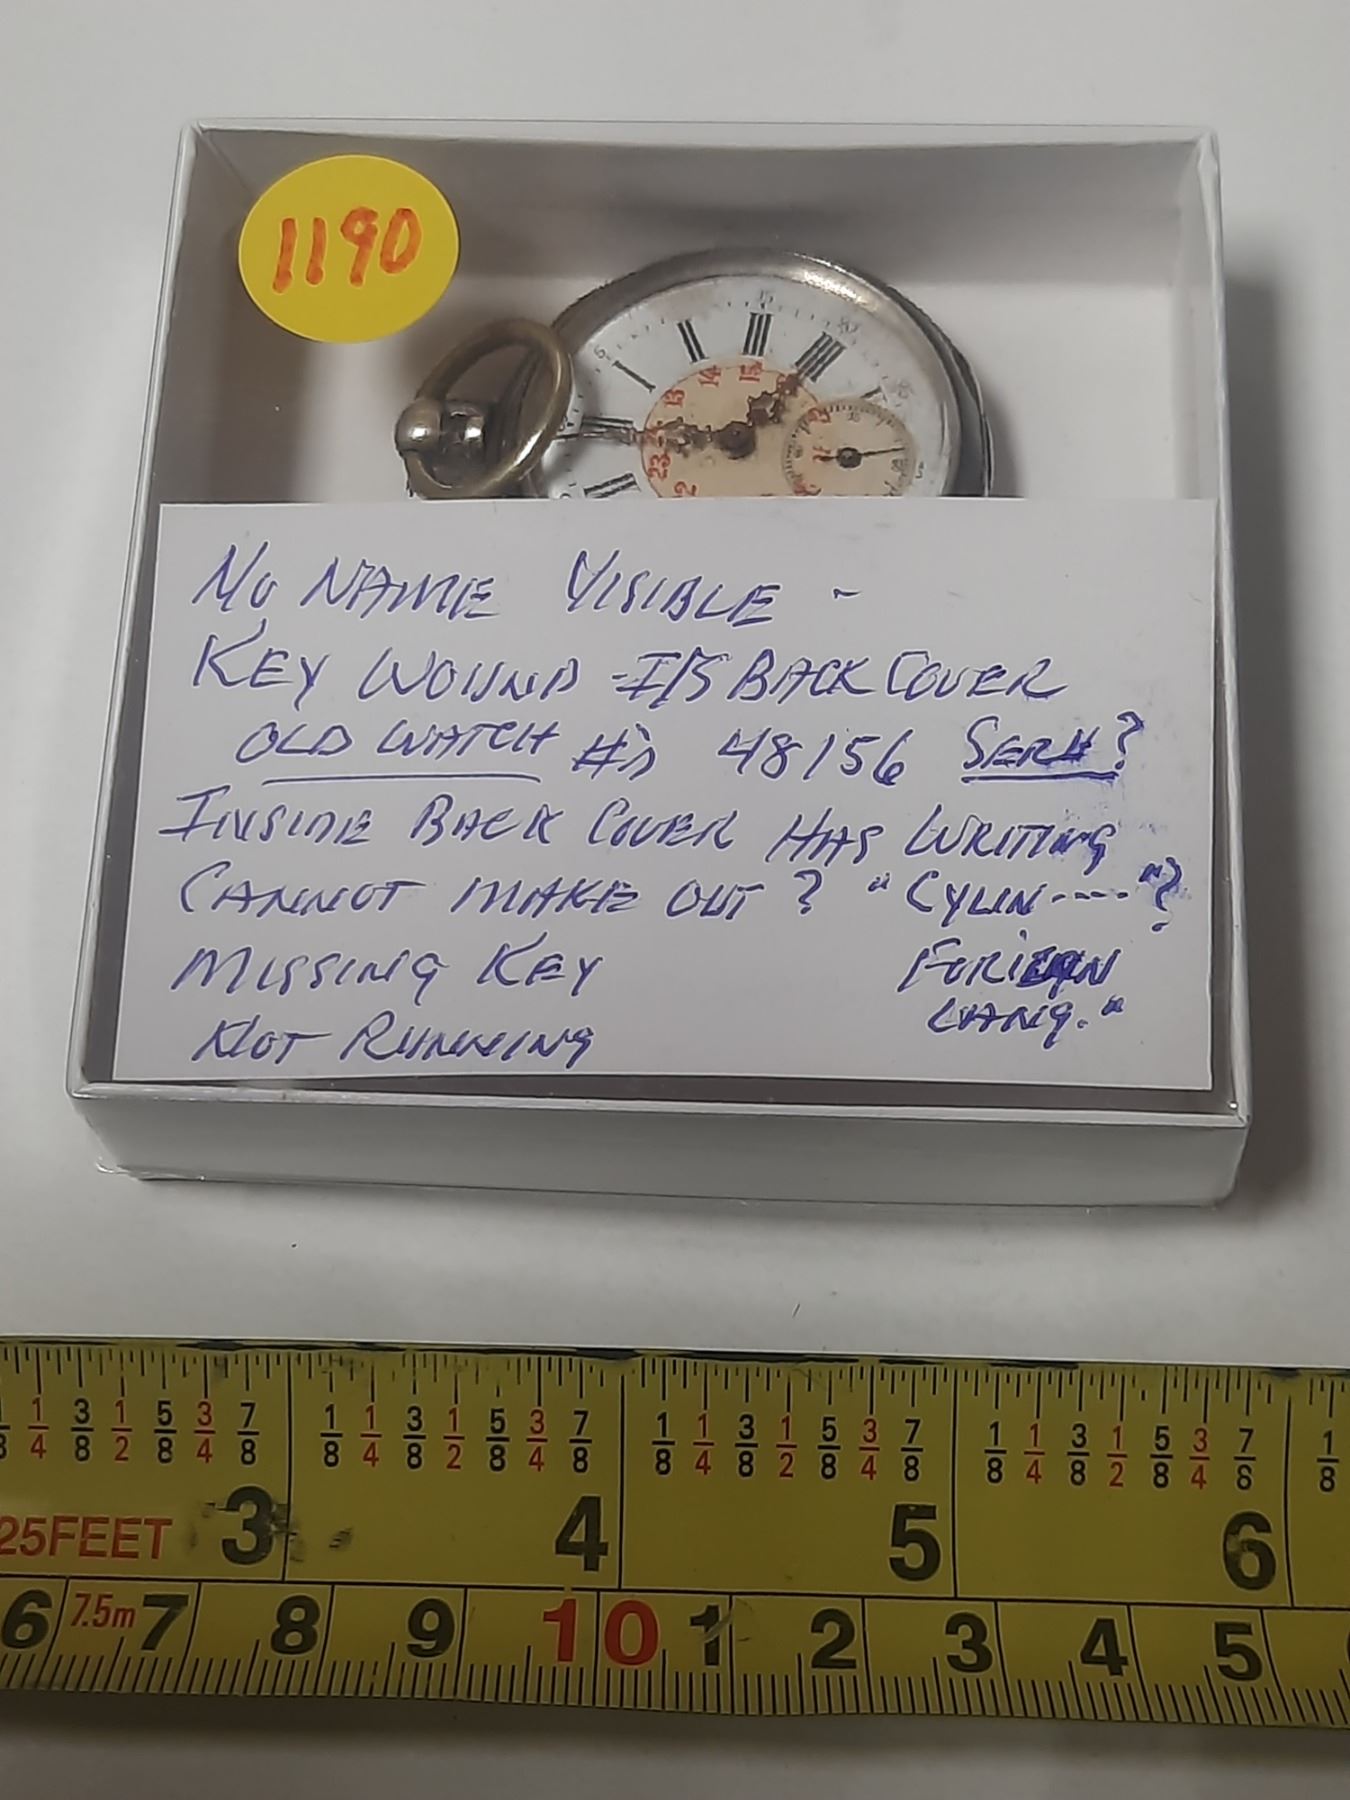 1190
No NAME VISIBLE -
KEY WOUND - I/S BACK COVER
OLD WATCH #'s 48156 SER#?
INSIDE BACK COVER HAS WRITING
CANNOT MAKE OUT? "CYLIN----"?
MISSING KEY FORIEGN
NOT RUNNING LANG."
13 14 15
23
1/4 3/8 1/2 5/8 3/4 7/8 1/8 1/4 3/8 1/2 5/8 3/4 7/8 1/8 1/4 3/8 1/2 5/8 3/4 7/8 1/8 1/4 3/8 1/2 5/8 3/4 7/8 1/8
25FEET 3 4 5 6
6 7.5m 7 8 9 10 1 2 3 4 5